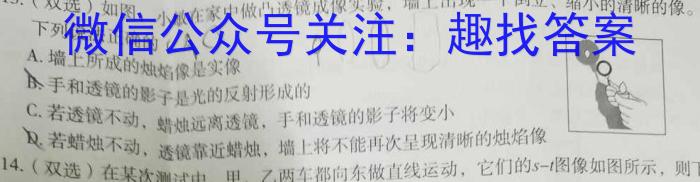 (双选)如图,小
家中做凸透镜成像实验,墙上出现一个倒立、缩小的清晰的像。
微信公众号关注:趣找答案
下列
A.墙上所成的烛焰像是实像
B.手和透镜的影子是光的反射形成的
C.若透镜不动,蜡烛远离透镜,手和透镜的影子将变小
D.若蜡烛不动,透镜靠近蜡烛,墙上将不能再次呈现清晰的烛焰像
14.(双选)在某次测试中,甲、乙两车都向东做直线运动,它们的s-t图像如图所示,则下